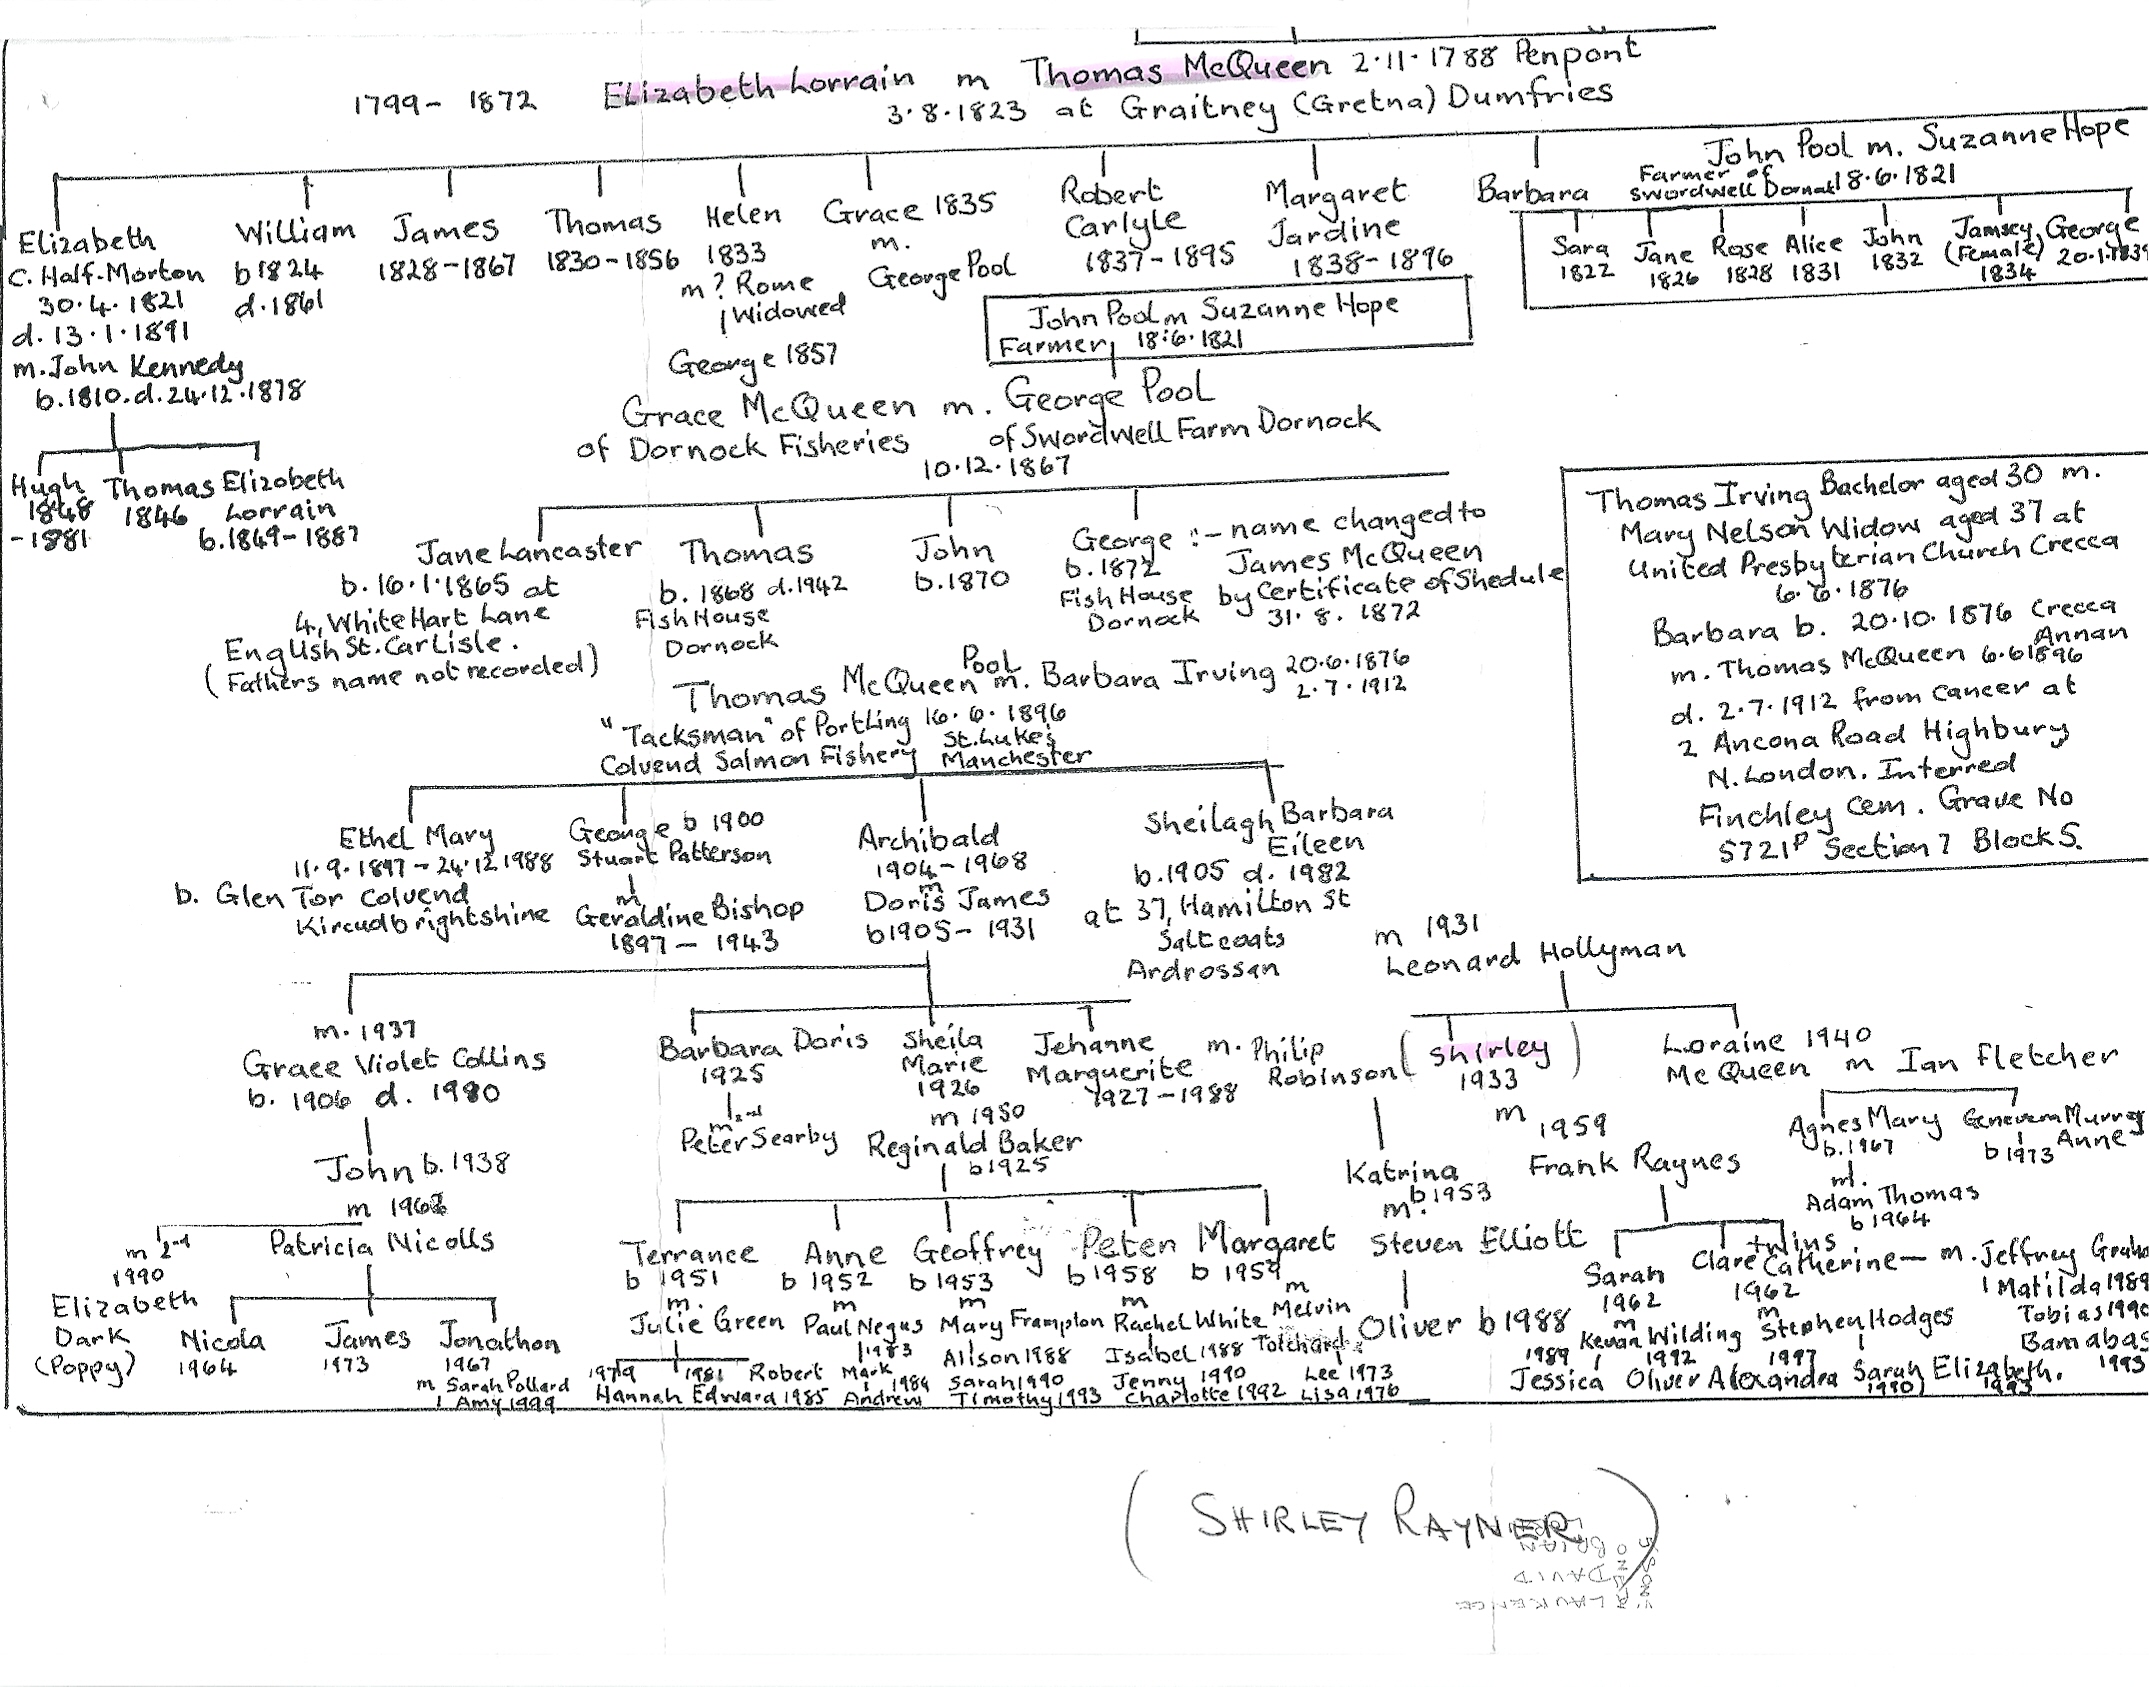 1799 - 1872 Elizabeth Lorrain m Thomas McQueen 2.11.1788 Penpont
3.8.1823 at Graitney (Gretna) Dumfries
John Pool m. Suzanne Hope
Farmer of
Swordwell Dornak 18.6.1821
Elizabeth
C. Half-Morton
30.4.1821
d. 13.1.1891
m. John Kennedy
b. 1810. d. 24.12.1878
William
b 1824
d. 1861
James
1828-1867
Thomas
1830-1856
Helen
1833
m ? Rome
Widowed
George 1857
Grace 1835
m.
George Pool
Robert
Carlyle
1837-1895
Margaret
Jardine
1838-1896
Barbara
Sara
1822
Jane
1826
Rose
1828
Alice
1831
John
1832
Jamsey
(Female)
1834
George
20.1.1839
John Pool m Suzanne Hope
Farmer 18:6.1821
Grace McQueen m. George Pool
of Dornock Fisheries of Swordwell Farm Dornock
10.12.1867
Hugh
1848
-1881
Thomas
1846
Elizabeth
Lorrain
b. 1849-1887
Jane Lancaster
b. 16.1.1865 at
4, White Hart Lane
English St. Carlisle.
(Fathers name not recorded)
Thomas
b. 1868 d. 1942
Fish House
Dornock
John
b. 1870
George :- name changed to
b. 1872 James McQueen
Fish House by Certificate of Shedule
Dornock 31. 8. 1872
Thomas Irving Bachelor aged 30 m.
Mary Nelson Widow aged 37 at
United Presbyterian Church Crecca
6.6.1876
Barbara b. 20.10.1876 Crecca
Annan
m. Thomas McQueen 6.6 1896
d. 2.7.1912 from cancer at
2 Ancona Road Highbury
N. London. Interred
Finchley Cem. Grave No
5721P Section 7 Block 5.
Pool
Thomas McQueen m. Barbara Irving 20.6.1876
2.7.1912
"Tacksman" of Portling 16.6.1896
Colvend Salmon Fishery St. Luke's
Manchester
Ethel Mary
11.9.1897 - 24.12.1988
b. Glen Tor Colvend
Kircudbrightshire
George b 1900
Stuart Patterson
m
Geraldine Bishop
1897 - 1943
Archibald
1904-1968
m
Doris James
b 1905-1931
Sheilagh Barbara
Eileen
b. 1905 d. 1982
at 37, Hamilton St
Saltcoats
Ardrossan
m 1931
Leonard Hollyman
m. 1937
Grace Violet Collins
b. 1906 d. 1980
Barbara Doris
1925
m 2nd
Peter Searby
Sheila
Marie
1926
m 1950
Reginald Baker
b 1925
Jehanne
Marguerite
1927-1988
m. Philip
Robinson
(Shirley)
1933
m 1959
Frank Raynes
Loraine 1940
McQueen m Ian Fletcher
Agnes Mary
b. 1967
m.
Adam Thomas
b 1964
Murray
Anne
b 1973
John b. 1938
m 1962
Patricia Nicolls
m 2nd
1990
Elizabeth
Dark
(Poppy)
Nicola
1964
James
1973
Jonathon
1967
m Sarah Pollard
Amy 1999
Katrina
b 1953
m.
Steven Elliott
Oliver b 1988
Terrance
b 1951
m.
Julie Green
1979
Hannah
1981
Edward 1985
Anne
b 1952
m
Paul Negus
Robert
1983
Mark
1986
Andrew
Geoffrey
b 1953
m
Mary Frampton
Alison 1988
Sarah 1990
Timothy 1993
Peter
b 1958
m
Rachel White
Isabel 1988
Jenny 1990
Charlotte 1992
Margaret
b 1959
m
Melvin
Tolchard
Lee 1973
Lisa 1976
Sarah
1962
m
Kevan Wilding
1989 1992 1997
Jessica Oliver Alexandra
twins
Clare Catherine - m. Jeffrey Graha
1962
m
Stephen Hodges
Sarah Elizabeth.
1990 1993
Matilda 1989
Tobias 1990
Barnabas
1993
(SHIRLEY RAYNER)
BRIAN
DAVID
LAURENCE